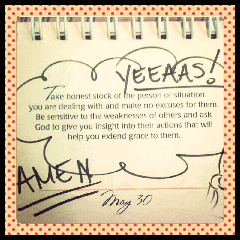 YEEAAS!
Take honest stock of the person or situation
you are dealing with and make no excuses for them.
Be sensitive to the weaknesses of others and ask
God to give you insight into their actions that will
help you extend grace to them.
AMEN
May 30